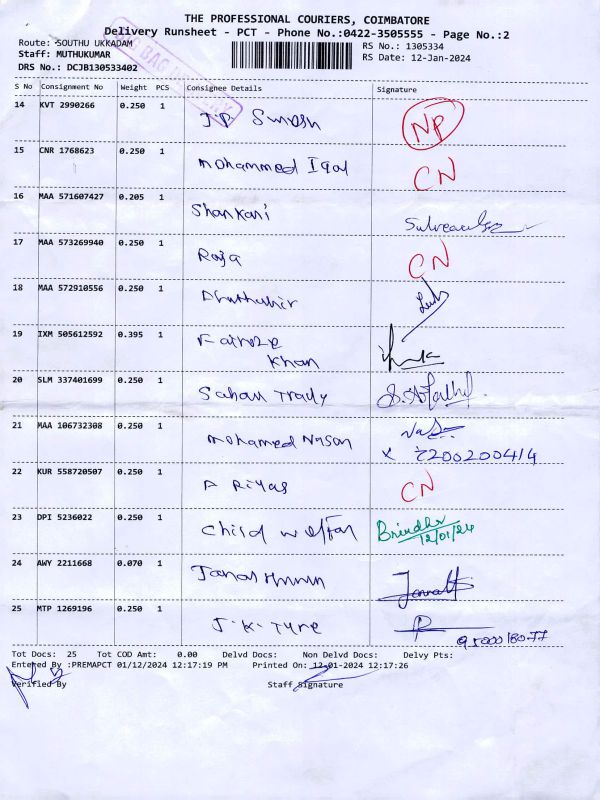 THE PROFESSIONAL COURIERS, COIMBATORE
Delivery Runsheet - PCT - Phone No.:0422-3505555 - Page No.:2
Route: SOUTHU UKKADAM RS No.: 1305334
Staff: MUTHUKUMAR RS Date: 12-Jan-2024
DRS No.: DCJB130533402
S No Consignment No Weight PCS Consignee Details Signature
14 KVT 2990266 0.250 1 J.P NP
15 CNR 1768623 0.250 1 Mohammed Iqal CN
16 MAA 571607427 0.205 1 Shankari
17 MAA 573269940 0.250 1 Roja CN
18 MAA 572910556 0.250 1
19 IXM 505612592 0.395 1 Fairoze
Khan
20 SLM 337401699 0.250 1 Sahau Trady
21 MAA 106732308 0.250 1 Mohamed Nason
22 KUR 558720507 0.250 1 A Riyas CN
23 DPI 5236022 0.250 1 Child Brindha
12/01/24
24 AWY 2211668 0.070 1
25 MTP 1269196 0.250 1 J.K. Tyre
Tot Docs: 25 Tot COD Amt: 0.00 Delvd Docs: Non Delvd Docs: Delvy Pts:
Entered By :PREMAPCT 01/12/2024 12:17:19 PM Printed On: 12-01-2024 12:17:26
Verified By Staff Signature